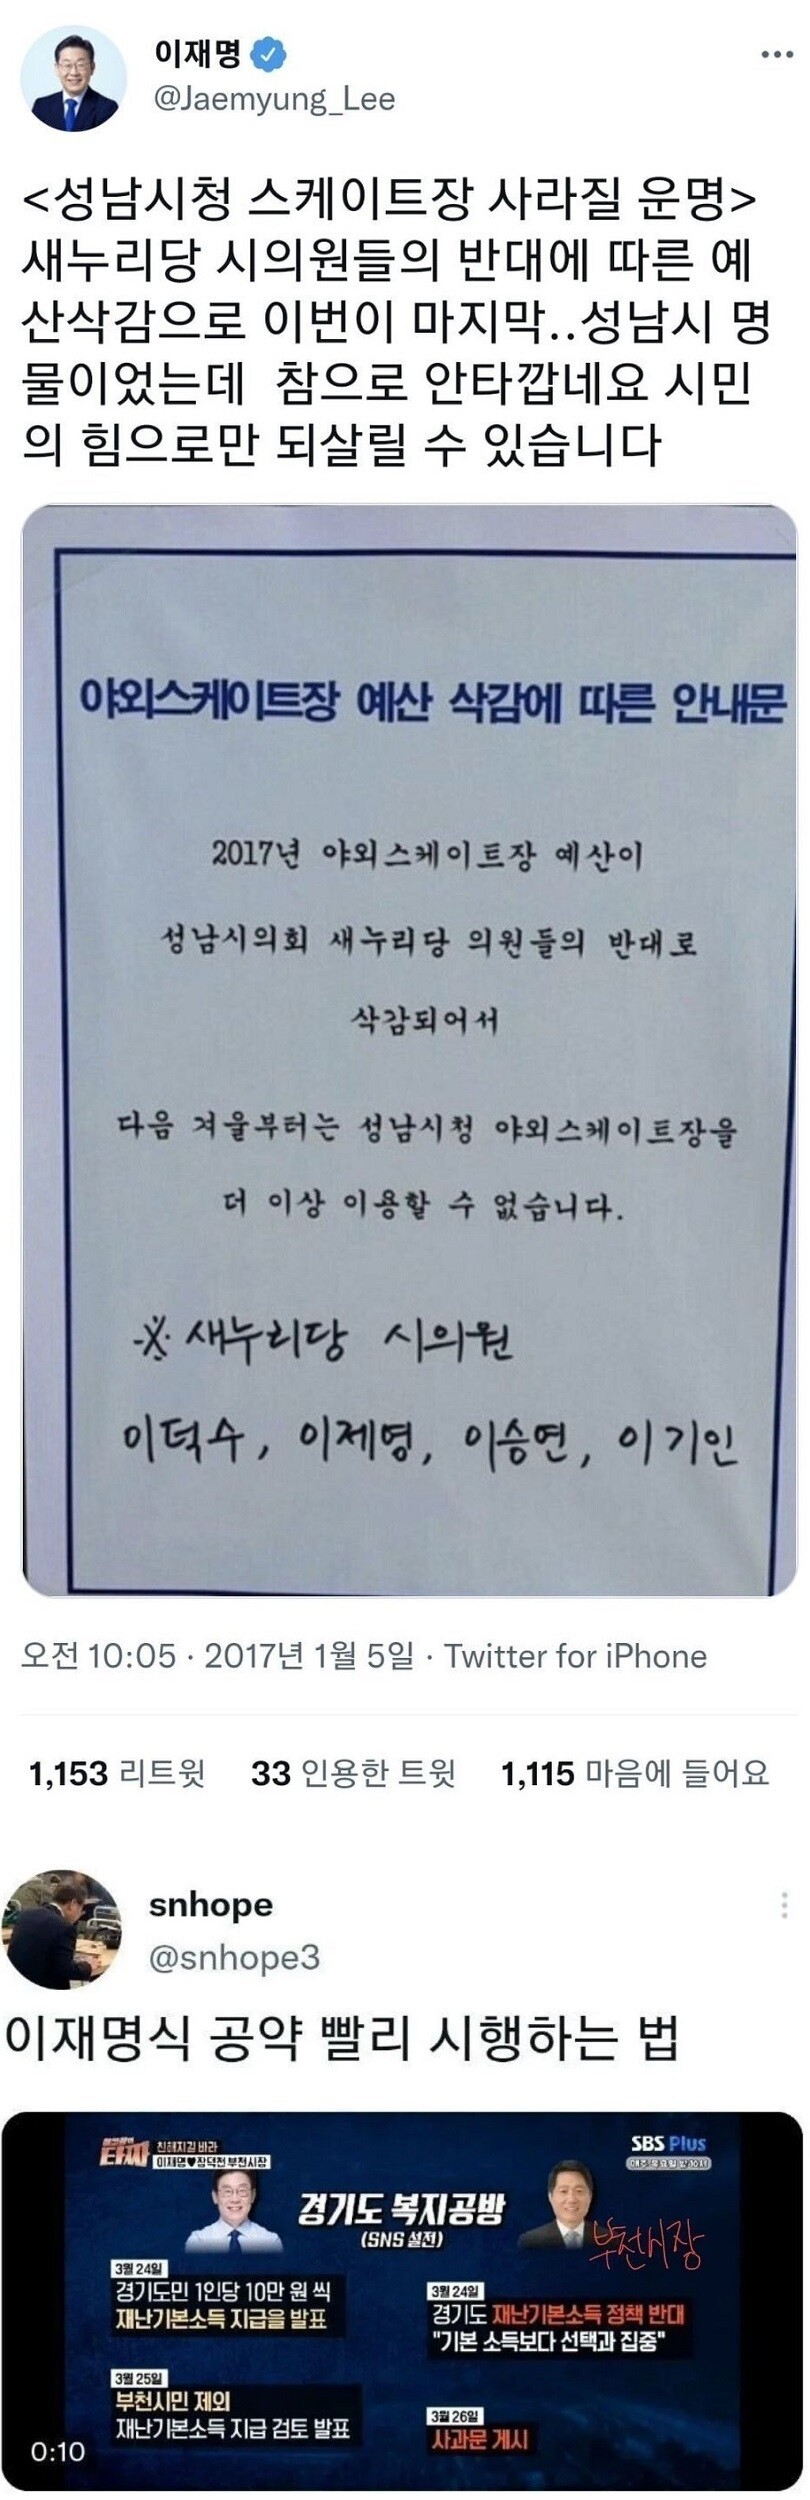 이재명
@Jaemyung_Lee
<성남시청 스케이트장 사라질 운명>
새누리당 시의원들의 반대에 따른 예
산삭감으로 이번이 마지막..성남시 명
물이었는데  참으로 안타깝네요 시민
의 힘으로만 되살릴 수 있습니다
야외스케이트장 예산 삭감에 따른 안내문
2017년 야외스케이트장 예산이
성남시의회 새누리당 의원들의 반대로
삭감되어서
다음 겨울부터는 성남시청 야외스케이트장을
더 이상 이용할 수 없습니다.
※ 새누리당 시의원
이덕수, 이제영, 이승연, 이기인
오전 10:05 · 2017년 1월 5일 · Twitter for iPhone
1,153 리트윗 33 인용한 트윗 1,115 마음에 들어요
snhope
@snhope3
이재명식 공약 빨리 시행하는 법
타짜
친해지길 바라
이재명♥장덕천 부천시장
SBS Plus
경기도 복지공방
(SNS 설전)
부천시장
3월 24일
경기도민 1인당 10만 원 씩
재난기본소득 지급을 발표
3월 24일
경기도 재난기본소득 정책 반대
"기본 소득보다 선택과 집중"
3월 25일
부천시민 제외
재난기본소득 지급 검토 발표
3월 26일
사과문 게시
0:10